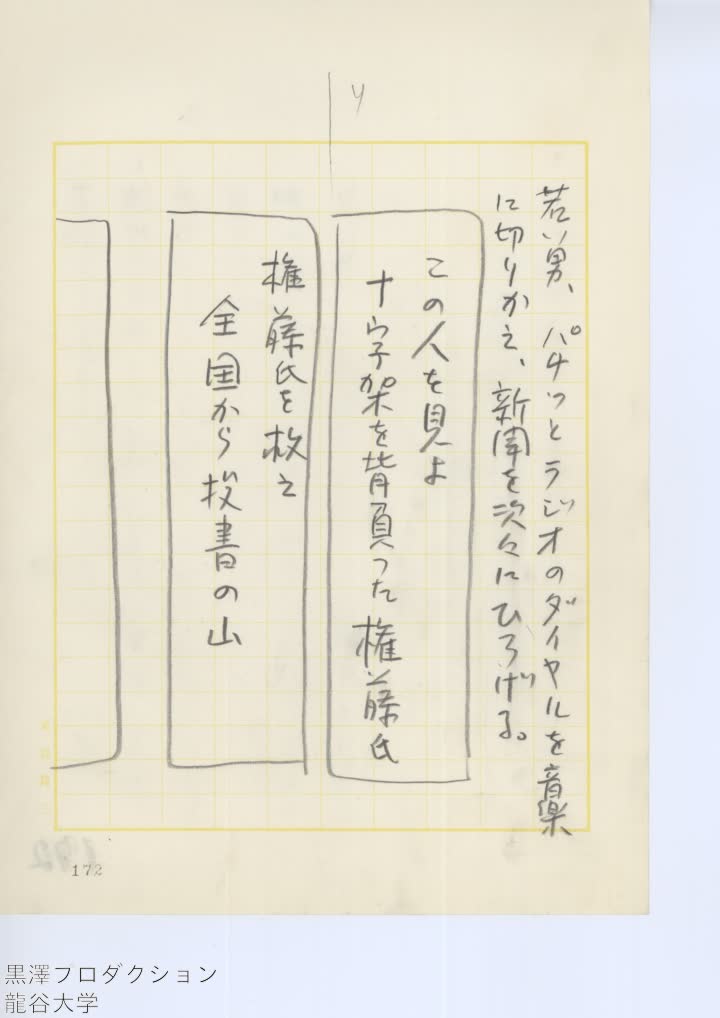 若い男、パチッとラジオのダイヤルを音楽
に切りかえ、新聞を次々にひろげる。
この人を見よ
十字架を背負った権藤氏
権藤氏を救え
全国から投書の山
172
黒澤プロダクション
龍谷大学